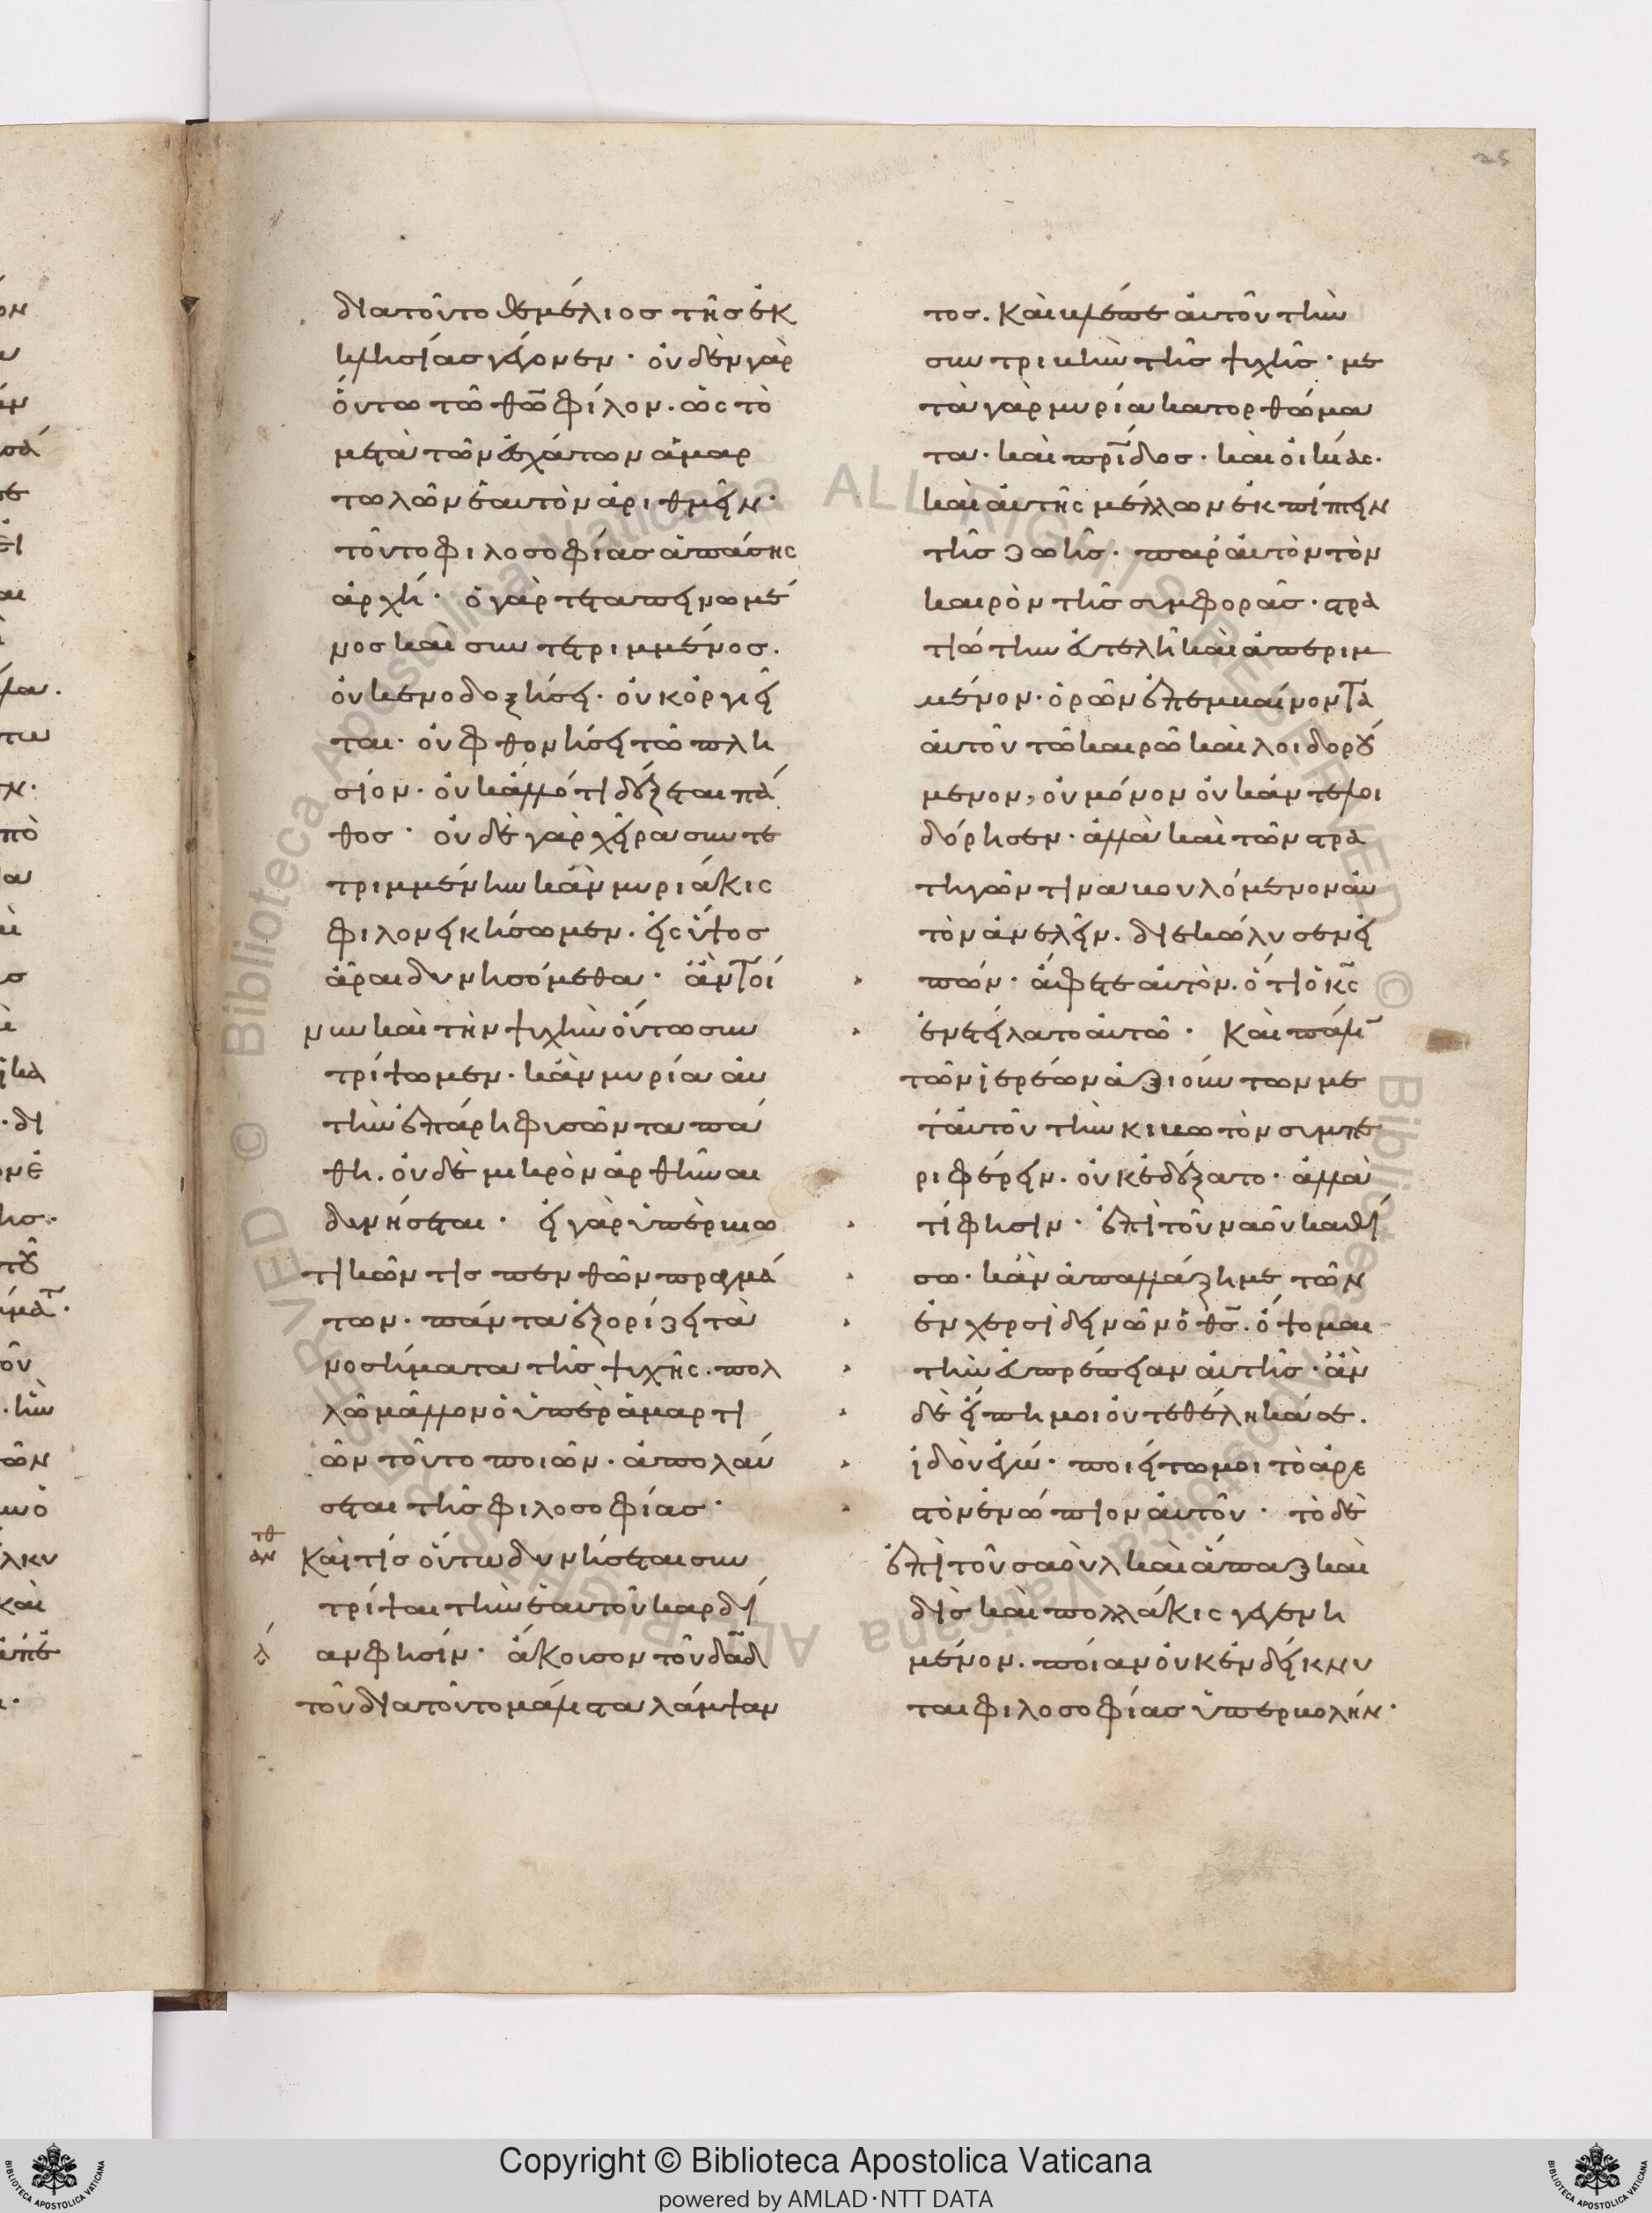 25
διατοῦτο θεμέλιος τῆς ἐκ
κλησίας γέγονεν· οὐδὲν γὰρ
οὕτω τῶ θῶ φίλον. ὡς τὸ
μετὰ τῶν ἐσχάτων ἁμαρ
τωλῶν ἑαυτὸν ἀριθμεῖν·
τοῦτο φιλοσοφίας ἁπάσης
ἀρχή· ὁ γὰρ τεταπεινωμέ
νος καὶ συντετριμμένος.
οὐ κενοδοξήσει· οὐκ ὀργιεῖ
ται· οὐ φθονήσει τῶ πλη
σίον· οὐκ ἄλλό τι δέξεται πά
θος· οὐδὲ γὰρ χεῖρα συντε
τριμμένην κἂν μυριάκις
φιλονεικήσωμεν. εἰς ὕψος
ἆραι δυνησόμεθα· ἂν τοί
νυν καὶ τὴν ψυχὴν οὕτω συν
τρίψωμεν. κἂν μυρία αὐ
τὴν ἐπάρη φυσῶντα πά
θη. οὐδὲ μικρὸν ἀρθῆναι
δυνήσεται· εἰ γὰρ ὑπὲρ βιω
τικῶν τις πενθῶν πραγμά
των. πάντα ἐξορίζει τὰ
νοσήματα τῆς ψυχῆς. πολ
λῶ μᾶλλον ὁ ὑπὲρ ἁμαρτι
ῶν τοῦτο ποιῶν. ἀπολαύ
σεται τῆς φιλοσοφίας·
Καὶ τίς οὕτω δυνήσεται συν
τρίψαι τὴν ἑαυτοῦ καρδί
αν φησίν· ἄκουσον τοῦ δαδ
τοῦ διατοῦτο μάλιστα λάμψαν
τος. Καὶ βλέπε αὐτοῦ τὴν
συντριβὴν τῆς ψυχῆς· με
τὰ γὰρ μυρία κατορθώμα
τα· καὶ πρίδος· καὶ οἰκίας.
καὶ αὐτῆς μέλλων ἐκπίπτειν
τῆς ζωῆς· παρ' αὐτὸν τὸν
καιρὸν τῆς συμφορᾶς· στρα
τιώτην εὐτελῆ καὶ ἀπεριμ
μένον· ὁρῶν ἐπεμβαίνοντα
αὐτοῦ τῶ καιρῶ καὶ λοιδορού
μενον, οὐ μόνον οὐκ ἀντελοι
δόρησεν· ἀλλὰ καὶ τῶν στρα
τηγῶν τινα βουλόμενον αὐ
τὸν ἀνελεῖν. διεκώλυσεν εἰ
πών· ἄφετε αὐτὸν. ὅτι ὁ κς
ἐνετείλατο αὐτῶ· Καὶ πάλι
τῶν ἱερέων ἀξιούντων με
τ' αὐτοῦ τὴν κιβωτὸν συμπε
ριφέρειν. οὐκ ἐδέξατο· ἀλλὰ
τί φησιν· ἐπὶ τοῦ ναοῦ καθί
σω· κἂν ἀπαλλάξη με τῶν
ἐν χερσὶ δεινῶν ὁ θς. ὄψομαι
τὴν εὐπρέπειαν αὐτῆς· ἂν
δὲ εἴπη μοι οὐ τεθέληκά σε.
ἰδοὺ ἐγώ· ποιείτω μοι τὸ ἀρε
στὸν ἐνώπιον αὐτοῦ· τὸ δὲ
ἐπὶ τοῦ σαοὺλ καὶ ἅπαξ καὶ
δὶς καὶ πολλάκις γεγενη
μένον. ποίαν οὐκ ἐνδείκνυ
ται φιλοσοφίας ὑπερβολήν·
Copyright © Biblioteca Apostolica Vaticana
powered by AMLAD·NTT DATA